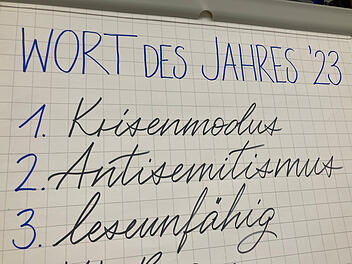 WORT DES JAHRES '23
1. Krisenmodus
2. Antisemitismus
3. leseunfähig